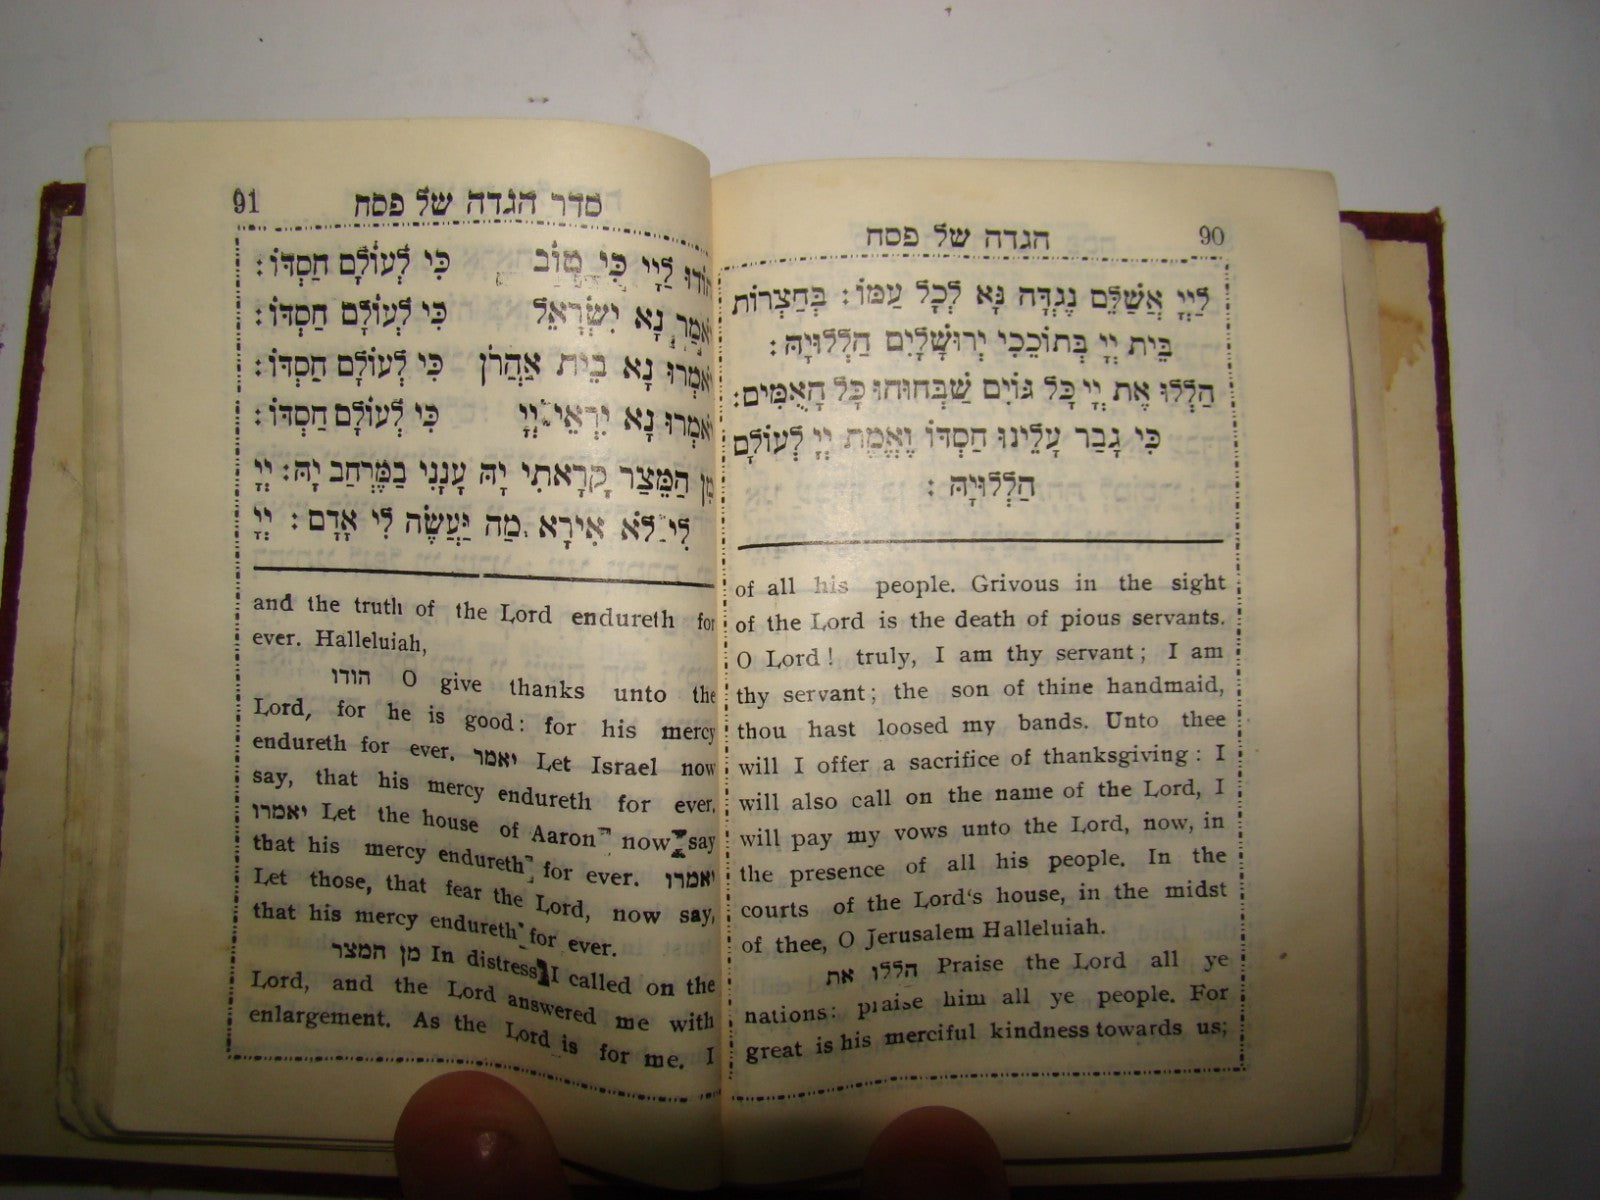 הגדה של פסח 90
לַיְיָ אֲשַׁלֵּם נֶגְדָּה נָּא לְכָל עַמּוֹ: בְּחַצְרוֹת
בֵּית יְיָ בְּתוֹכֵכִי יְרוּשָׁלָיִם הַלְלוּיָהּ:
הַלְלוּ אֶת יְיָ כָּל גּוֹיִם שַׁבְּחוּהוּ כָּל הָאֻמִּים:
כִּי גָבַר עָלֵינוּ חַסְדּוֹ וֶאֱמֶת יְיָ לְעוֹלָם
הַלְלוּיָהּ:
of all his people. Grivous in the sight
of the Lord is the death of pious servants.
O Lord! truly, I am thy servant; I am
thy servant; the son of thine handmaid,
thou hast loosed my bands. Unto thee
will I offer a sacrifice of thanksgiving: I
will also call on the name of the Lord, I
will pay my vows unto the Lord, now, in
the presence of all his people. In the
courts of the Lord's house, in the midst
of thee, O Jerusalem Halleluiah.
הללו את Praise the Lord all ye
nations: praise him all ye people. For
great is his merciful kindness towards us;
סדר הגדה של פסח 91
הוֹדוּ לַיְיָ כִּי טוֹב כִּי לְעוֹלָם חַסְדּוֹ:
יֹאמַר נָא יִשְׂרָאֵל כִּי לְעוֹלָם חַסְדּוֹ:
יֹאמְרוּ נָא בֵית אַהֲרֹן כִּי לְעוֹלָם חַסְדּוֹ:
יֹאמְרוּ נָא יִרְאֵי יְיָ כִּי לְעוֹלָם חַסְדּוֹ:
מִן הַמֵּצַר קָרָאתִי יָּהּ עָנָנִי בַמֶּרְחַב יָהּ: יְיָ
לִי לֹא אִירָא מַה יַּעֲשֶׂה לִי אָדָם: יְיָ
and the truth of the Lord endureth for
ever. Halleluiah,
הודו O give thanks unto the
Lord, for he is good: for his mercy
endureth for ever. יאמר Let Israel now
say, that his mercy endureth for ever.
יאמרו Let the house of Aaron now say
that his mercy endureth for ever. יאמרו
Let those, that fear the Lord, now say,
that his mercy endureth for ever.
מן המצר In distress I called on the
Lord, and the Lord answered me with
enlargement. As the Lord is for me. I